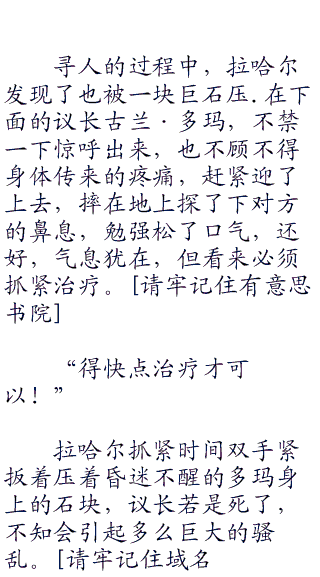 寻人的过程中，拉哈尔
发现了也被一块巨石压.在下
面的议长古兰·多玛，不禁
一下惊呼出来，也不顾不得
身体传来的疼痛，赶紧迎了
上去，摔在地上探了下对方
的鼻息，勉强松了口气，还
好，气息犹在，但看来必须
抓紧治疗。[请牢记住有意思
书院]
“得快点治疗才可
以！”
拉哈尔抓紧时间双手紧
扳着压着昏迷不醒的多玛身
上的石块，议长若是死了，
不知会引起多么巨大的骚
乱。[请牢记住域名